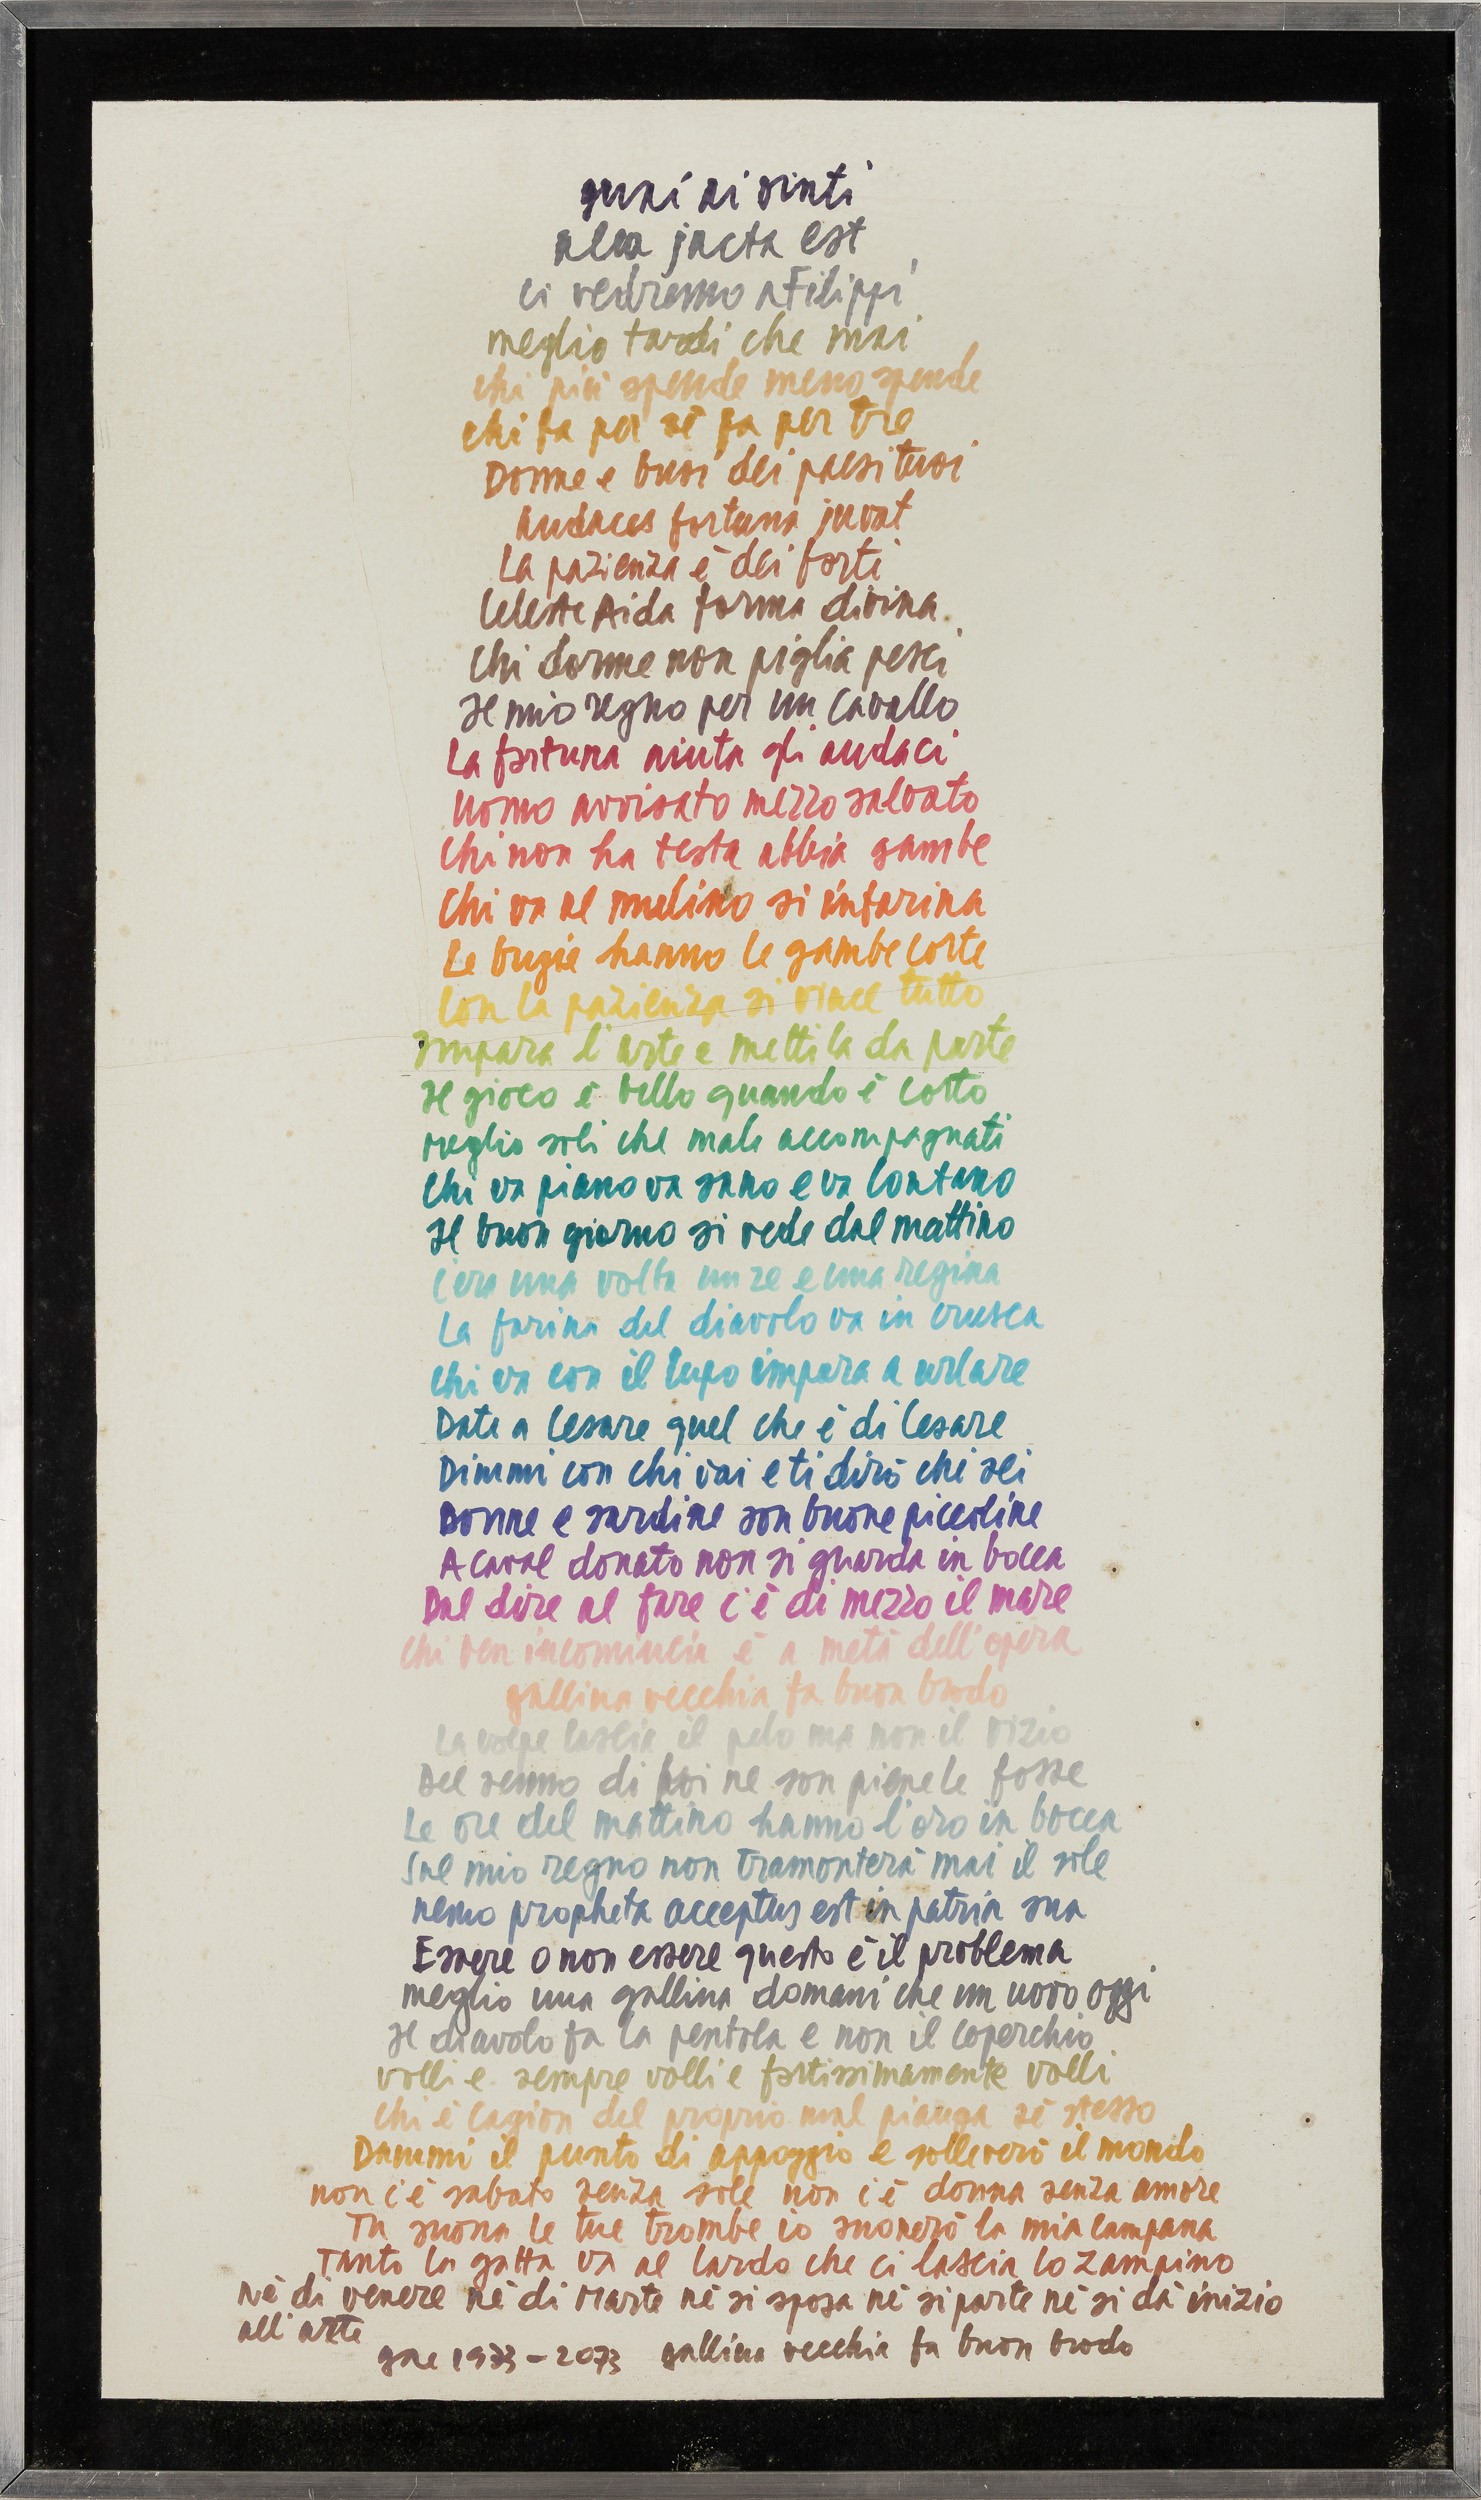 guai ai vinti
alea jacta est
ci vedremo a Filippi
meglio tardi che mai
chi più spende meno spende
chi fa per sé fa per tre
Donne e buoi dei paesi tuoi
audaces fortuna juvat
La pazienza è dei forti
Celeste Aida forma divina
Chi dorme non piglia pesci
Il mio regno per un cavallo
La fortuna aiuta gli audaci
Uomo avvisato mezzo salvato
Chi non ha testa abbia gambe
Chi va al mulino si infarina
Le bugie hanno le gambe corte
Con la pazienza si vince tutto
Impara l'arte e mettila da parte
Il gioco è bello quando è corto
meglio soli che male accompagnati
Chi va piano va sano e va lontano
Il buon giorno si vede dal mattino
C'era una volta un re e una regina
La farina del diavolo va in crusca
Chi va con il lupo impara a urlare
Date a Cesare quel che è di Cesare
Dimmi con chi vai e ti dirò chi sei
Donne e sardine son buone piccoline
A caval donato non si guarda in bocca
Dal dire al fare c'è di mezzo il mare
Chi ben incomincia è a metà dell'opera
gallina vecchia fa buon brodo
La volpe lascia il pelo ma non il vizio
Del senno di poi ne son piene le fosse
Le ore del mattino hanno l'oro in bocca
Sul mio regno non tramonterà mai il sole
nemo propheta acceptus est in patria sua
Essere o non essere questo è il problema
meglio una gallina domani che un uovo oggi
Il diavolo fa la pentola e non il coperchio
volli e sempre volli e fortissimamente volli
Chi è cagion del proprio mal pianga sé stesso
Dammi il punto di appoggio e solleverò il mondo
non c'è sabato senza sole non c'è donna senza amore
Tu suona le tue trombe io suonerò la mia campana
Tanto la gatta va al lardo che ci lascia lo zampino
Nè di venere nè di Marte nè si sposa nè si parte nè si dà inizio
all'arte
1973-2073 gallina vecchia fa buon brodo